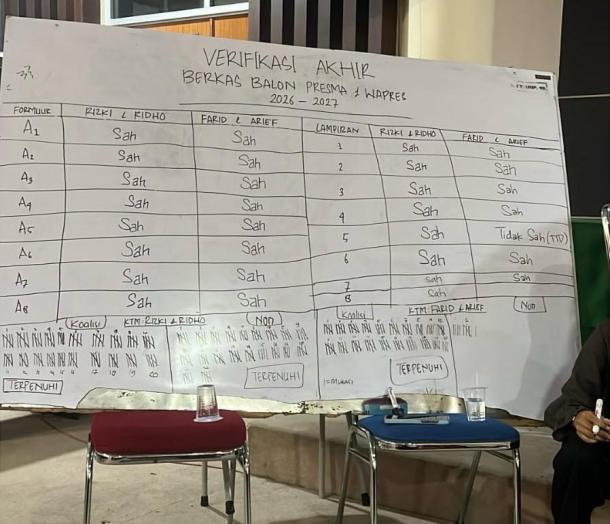 VERIFIKASI AKHIR
BERKAS BALON PRESMA & WAPRES
2026 - 2027
FORMULIR RIZKI & RIDHO FARID & ARIEF LAMPIRAN RIZKI & RIDHO FARID & ARIEF
A1 Sah Sah 1 Sah Sah
A2 Sah Sah 2 Sah Sah
A3 Sah Sah 3 Sah Sah
A4 Sah Sah 4 Sah Sah
A5 Sah Sah 5 Sah Tidak Sah (TTD)
A6 Sah Sah 6 Sah Sah
A7 Sah Sah 7 Sah Sah
A8 Sah Sah 8 Sah
Koalisi KTM RIZKI & RIDHO Non Koalisi KTM FARID & ARIEF Non
TERPENUHI TERPENUHI TERPENUHI